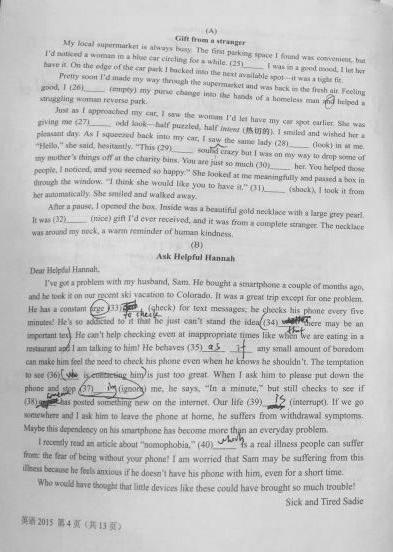 (A)
Gift from a stranger
My local supermarket is always busy. The first parking space I found was convenient, but
I'd noticed a woman in a blue car circling for a while. (25)____ I was in a good mood, I let her
have it. On the edge of the car park I backed into the next available spot—it was a tight fit.
Pretty soon I'd made my way through the supermarket and was back in the fresh air. Feeling
good, I (26)____ (empty) my purse change into the hands of a homeless man and helped a
struggling woman reverse park.
Just as I approached my car, I saw the woman I'd let have my car spot earlier. She was
giving me (27)____ odd look—half puzzled, half intent (热切的). I smiled and wished her a
pleasant day. As I squeezed back into my car, I saw the same lady (28)____ (look) in at me.
"Hello," she said, hesitantly. "This (29)____ sound crazy but I was on my way to drop some of
my mother's things off at the charity bins. You are just so much (30)____ her. You helped those
people, I noticed, and you seemed so happy." She looked at me meaningfully and passed a box in
through the window. "I think she would like you to have it." (31)____ (shock), I took it from
her automatically. She smiled and walked away.
After a pause, I opened the box. Inside was a beautiful gold necklace with a large grey pearl.
It was (32)____ (nice) gift I'd ever received, and it was from a complete stranger. The necklace
was around my neck, a warm reminder of human kindness.
(B)
Ask Helpful Hannah
Dear Helpful Hannah,
I've got a problem with my husband, Sam. He bought a smartphone a couple of months ago,
and he took it on our recent ski vacation to Colorado. It was a great trip except for one problem.
He has a constant urge (33) to check (check) for text messages; he checks his phone every five
minutes! He's so addicted to it that he just can't stand the idea (34) that there may be an
important text. He can't help checking even at inappropriate times like when we are eating in a
restaurant and I am talking to him! He behaves (35) as if any small amount of boredom
can make him feel the need to check his phone even when he knows he shouldn't. The temptation
to see (36) who is contacting him is just too great. When I ask him to please put down the
phone and stop (37) ing (ignore) me, he says, "In a minute," but still checks to see if
(38) has posted something new on the internet. Our life (39) is (interrupt). If we go
somewhere and I ask him to leave the phone at home, he suffers from withdrawal symptoms.
Maybe this dependency on his smartphone has become more than an everyday problem.
I recently read an article about "nomophobia," (40) which is a real illness people can suffer
from: the fear of being without your phone! I am worried that Sam may be suffering from this
illness because he feels anxious if he doesn't have his phone with him, even for a short time.
Who would have thought that little devices like these could have brought so much trouble!
Sick and Tired Sadie
英语 2015 第 4 页（共 13 页）